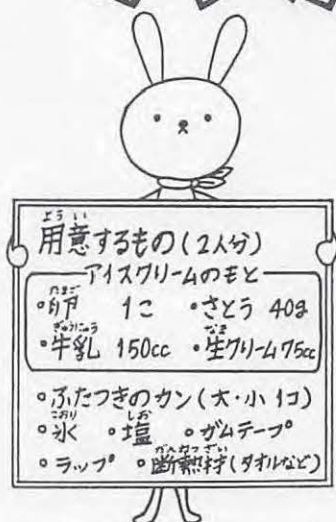 用意するもの(2人分)
アイスクリームのもと
・卵 1こ ・さとう 40g
・牛乳 150cc ・生クリーム 75cc
・ふたつきのカン(大・小 1コ)
・氷 ・塩 ・ガムテープ
・ラップ ・断熱材(タオルなど)